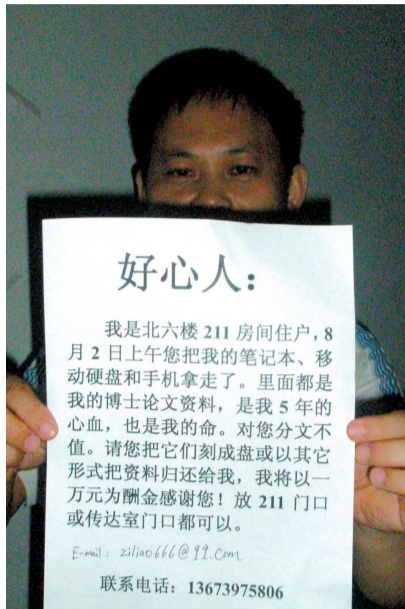 好心人：
我是北六楼 211 房间住户，8
月 2 日上午您把我的笔记本、移
动硬盘和手机拿走了。里面都是
我的博士论文资料，是我 5 年的
心血，也是我的命。对您分文不
值。请您把它们刻成盘或以其它
形式把资料归还给我，我将以一
万元为酬金感谢您！放 211 门口
或传达室门口都可以。
E-mail: ziliao666@99.com
联系电话：13673975806